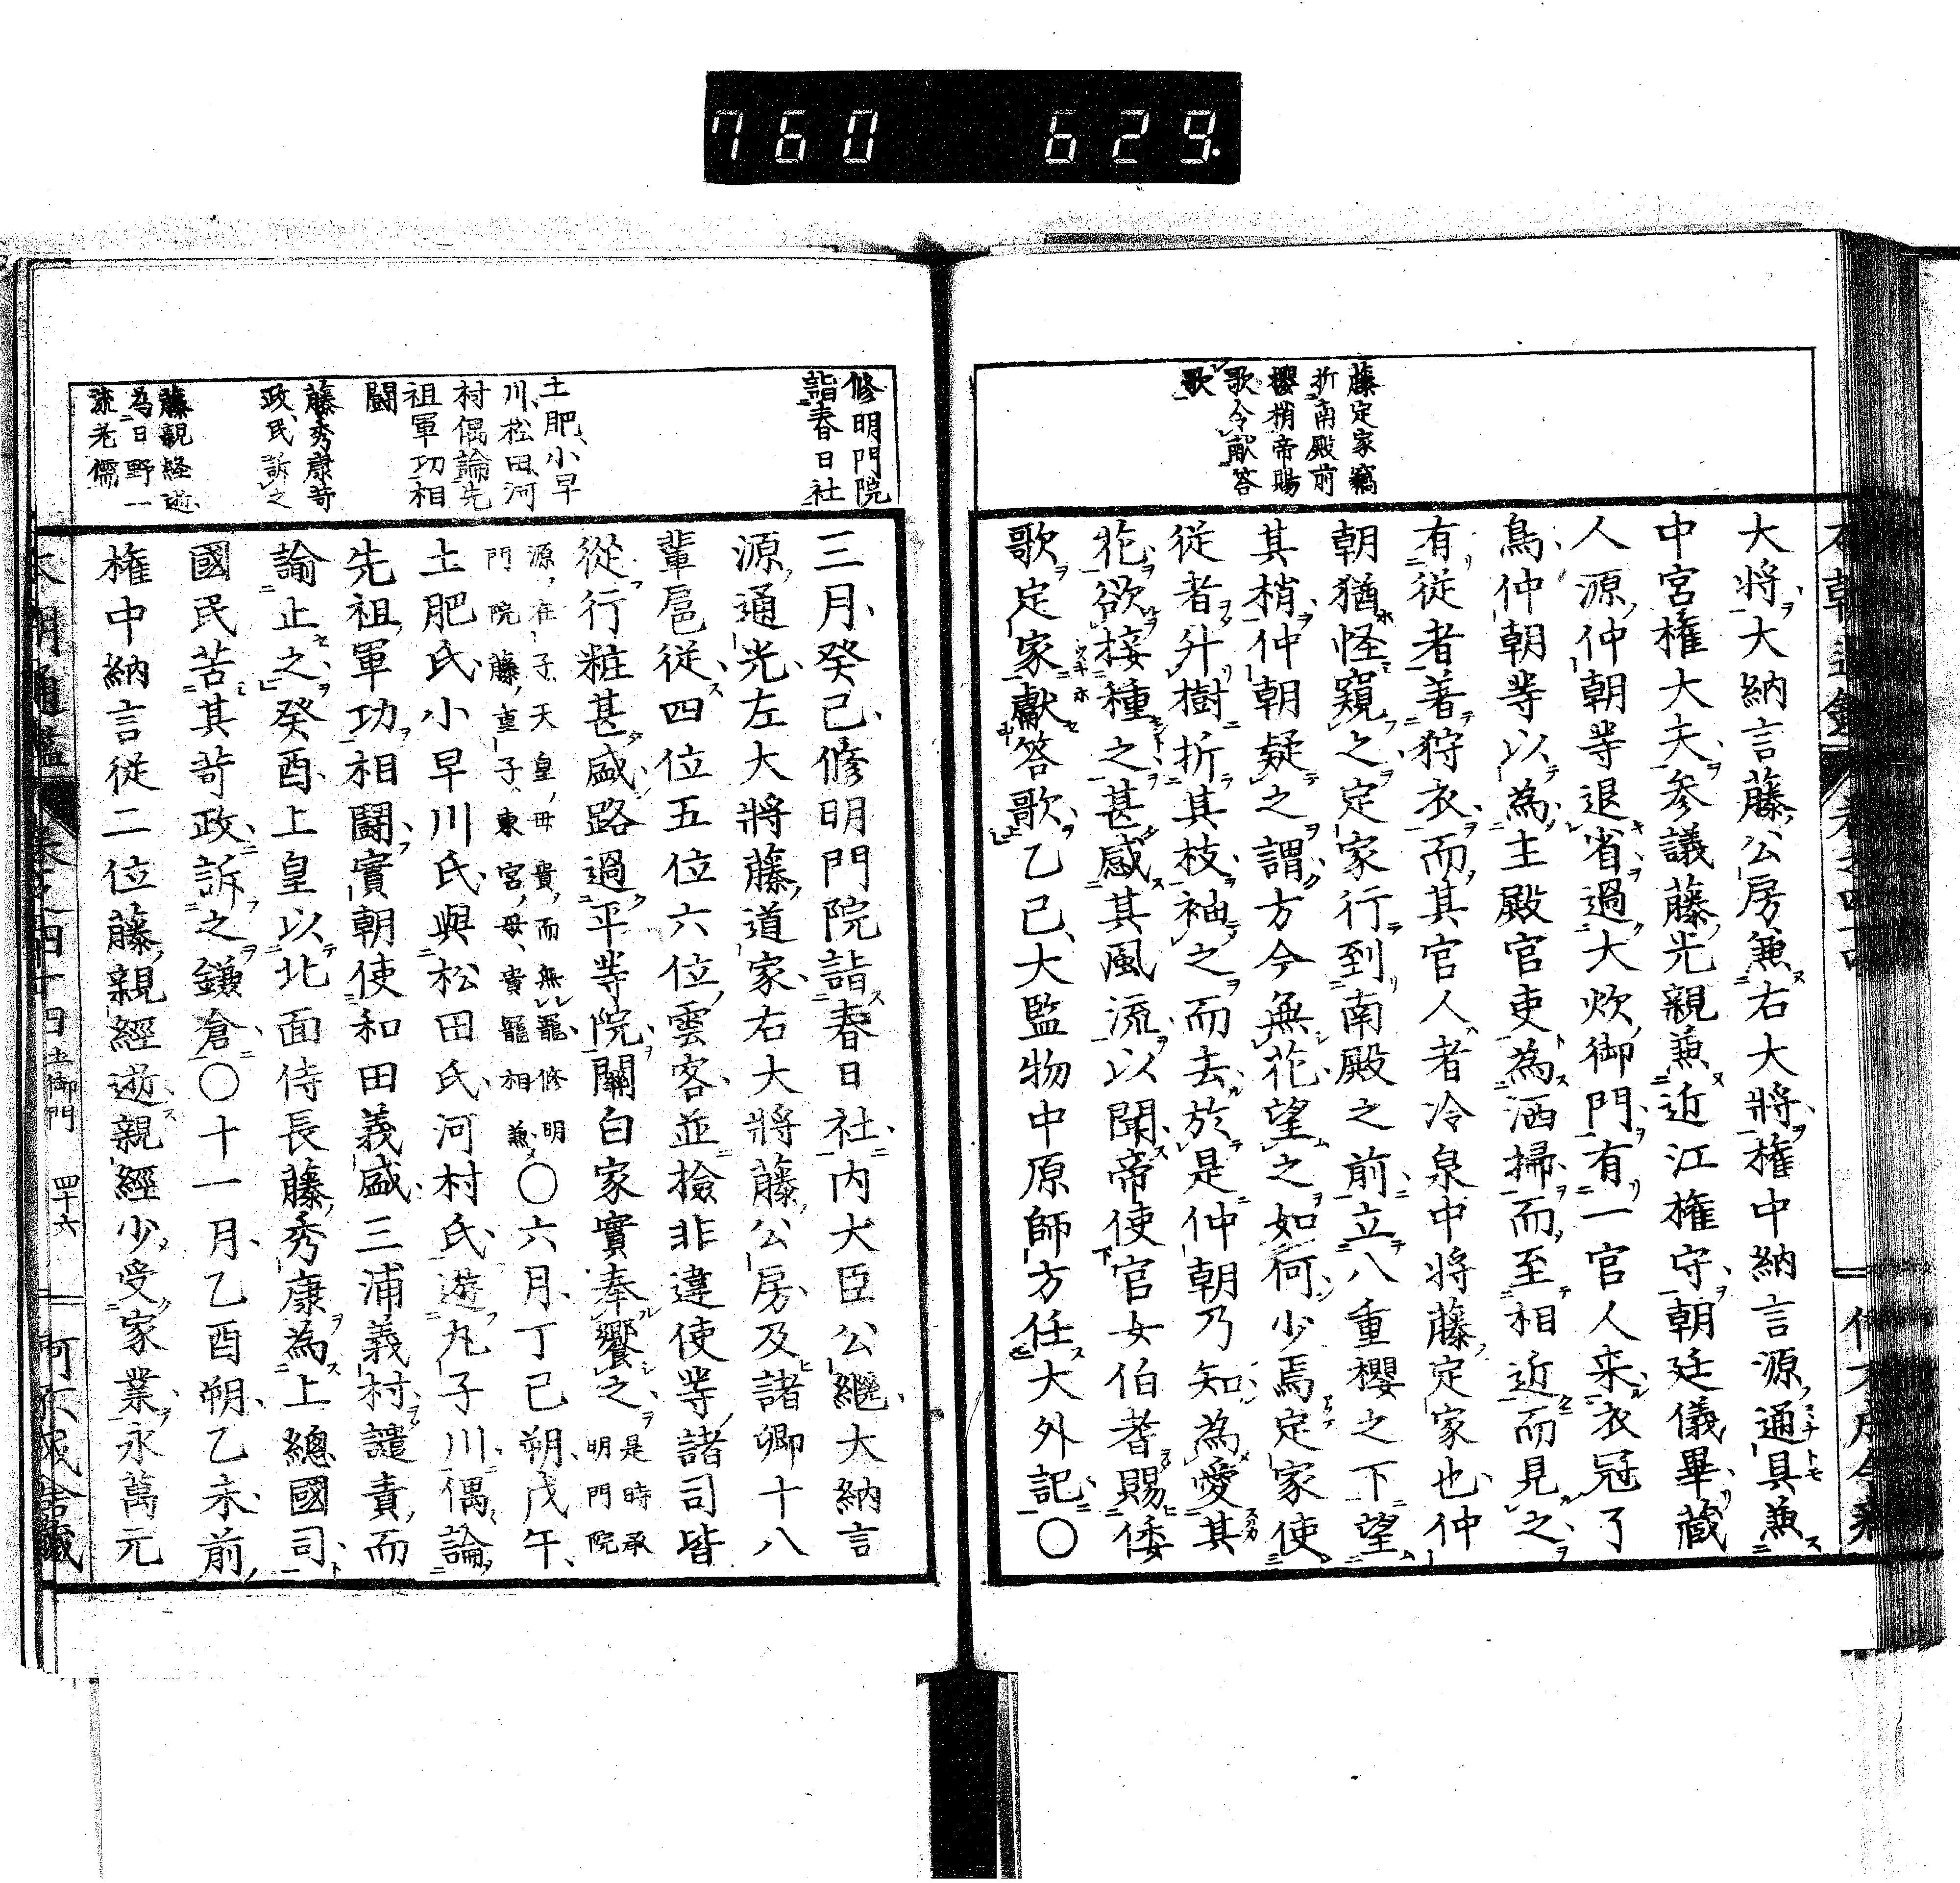 760 629.
藤定家竊
折南殿前
櫻梢帝賜
歌令獻答
歌
大将大納言藤公房兼右大將權中納言源通具兼
中宮權大夫參議藤光親兼近江權守朝廷儀畢藏
人源仲朝等退省過大炊御門有一官人来衣冠了
鳥仲朝等以為主殿官吏為洒掃而至相近而見之
有従者著狩衣而其官人者冷泉中将藤定家也仲
朝猶怪窺之定家行到南殿之前立八重櫻之下望
其梢仲朝疑之謂方今無花望之如何少焉定家使
従者升樹折其枝袖之而去於是仲朝乃知為愛其
花欲接種之甚感其風流以聞帝使官女伯耆賜倭
歌定家獻答歌乙己大監物中原師方任大外記〇
修明門院
詣春日社
土肥小早
川松田河
村偶論先
祖軍功相
鬪
藤秀康苛
政民訴之
藤親経逝
為日野一
流老儒
三月癸己修明門院詣春日社内大臣公繼大納言
源通光左大將藤道家右大將藤公房及諸卿十八
輩扈従四位五位六位雲客並撿非違使等諸司皆
從行粧甚盛路過平等院關白家實奉饗之是時承
明門院
源在子天皇母貴而無寵修明
門院藤重子東宮母貴寵相兼〇六月丁已朔戊午
土肥氏小早川氏與松田氏河村氏遊丸子川偶論
先祖軍功相鬪實朝使和田義盛三浦義村譴責而
諭止之癸酉上皇以北面侍長藤秀康為上總國司
國民苦其苛政訴之鎌倉〇十一月乙酉朔乙未前
權中納言従二位藤親經逝親經少受家業永萬元
土御門 四十六